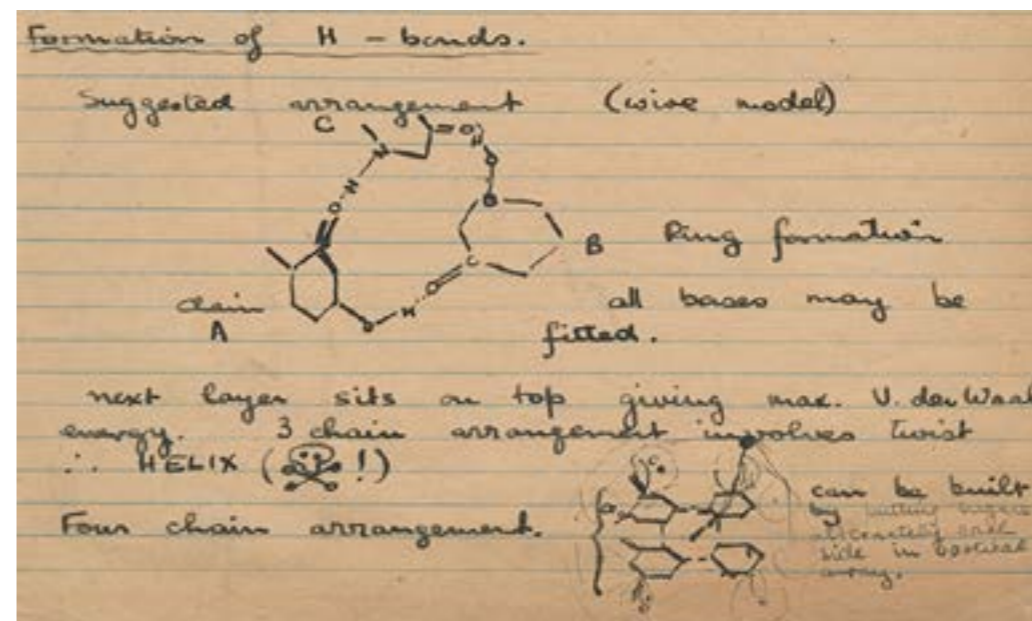 Formation of H - bonds.
Suggested arrangement (wire model)
C
B Ring formation
chain all bases may be
A fitted.
next layer sits on top giving max. V. der Waal
energy. 3 chain arrangement involves twist
∴ HELIX ( !)
Four chain arrangement. can be built
by putting sugars
alternately each
side in vertical
array.